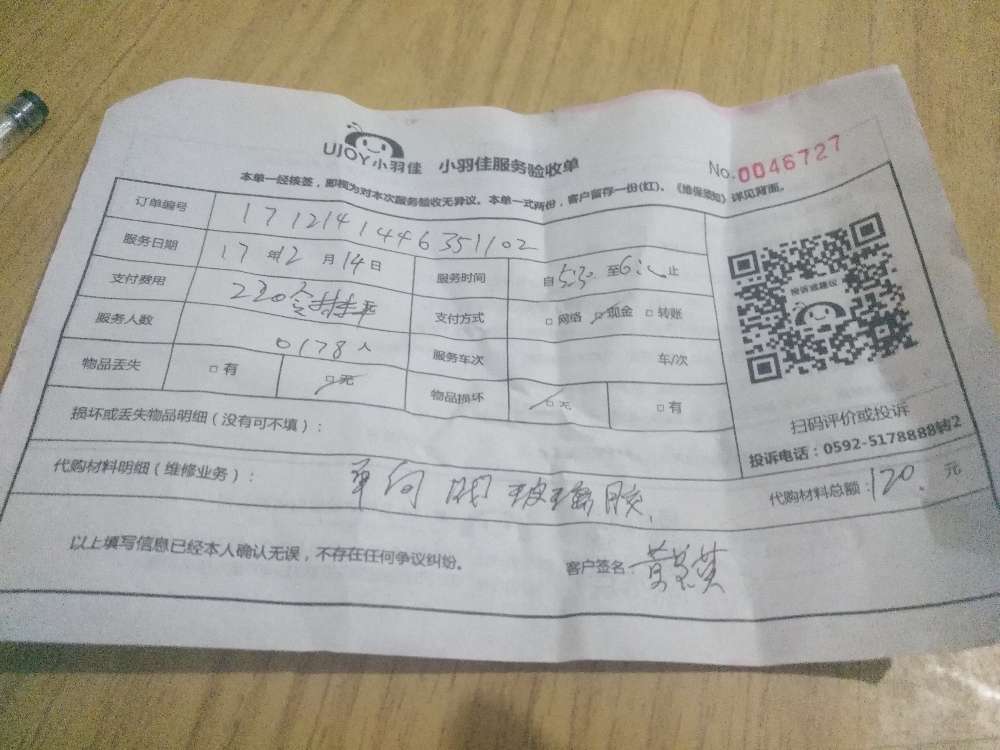 UJOY小羽佳 小羽佳服务验收单 No.0046727
本单一经核签，即视为对本次服务验收无异议。本单一式两份，客户留存一份(红)、《维保须知》详见背面。
订单编号 1712141446351102
服务日期 17年12月14日 服务时间 自5:30至6:止
支付费用 230 支付方式 □网络 □现金 □转账
服务人数 0178人 服务车次 车/次
物品丢失 □有 □无 物品损坏 □无 □有
投诉或建议
扫码评价或投诉
投诉电话：0592-5178888转2
损坏或丢失物品明细（没有可不填）：
代购材料明细（维修业务）： 单向阀 玻璃胶. 代购材料总额：120.元
以上填写信息已经本人确认无误，不存在任何争议纠纷。 客户签名：黄